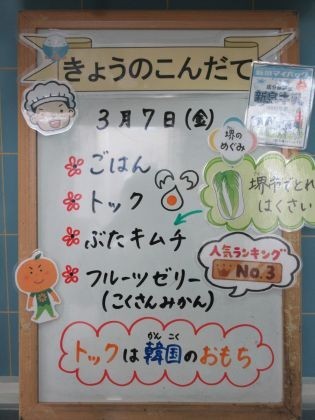 きょうのこんだて
3月7日(金)
堺の
めぐみ
ごはん
トック
堺市でとれた
はくさい
ぶたキムチ
人気ランキング
No.3
フルーツゼリー
(こくさんみかん)
かん こく
トックは韓国のおもち